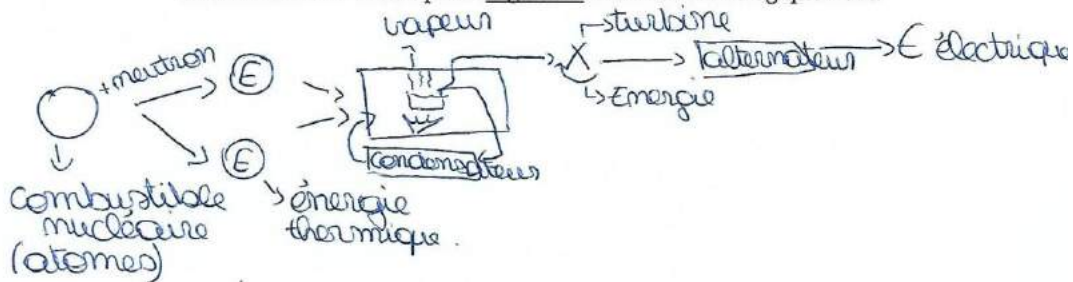 vapeur
turbine
+ neutron
E
X
alternateur
E électrique
Energie
E
condensateur
combustible
nucléaire
(atomes)
énergie
thermique.